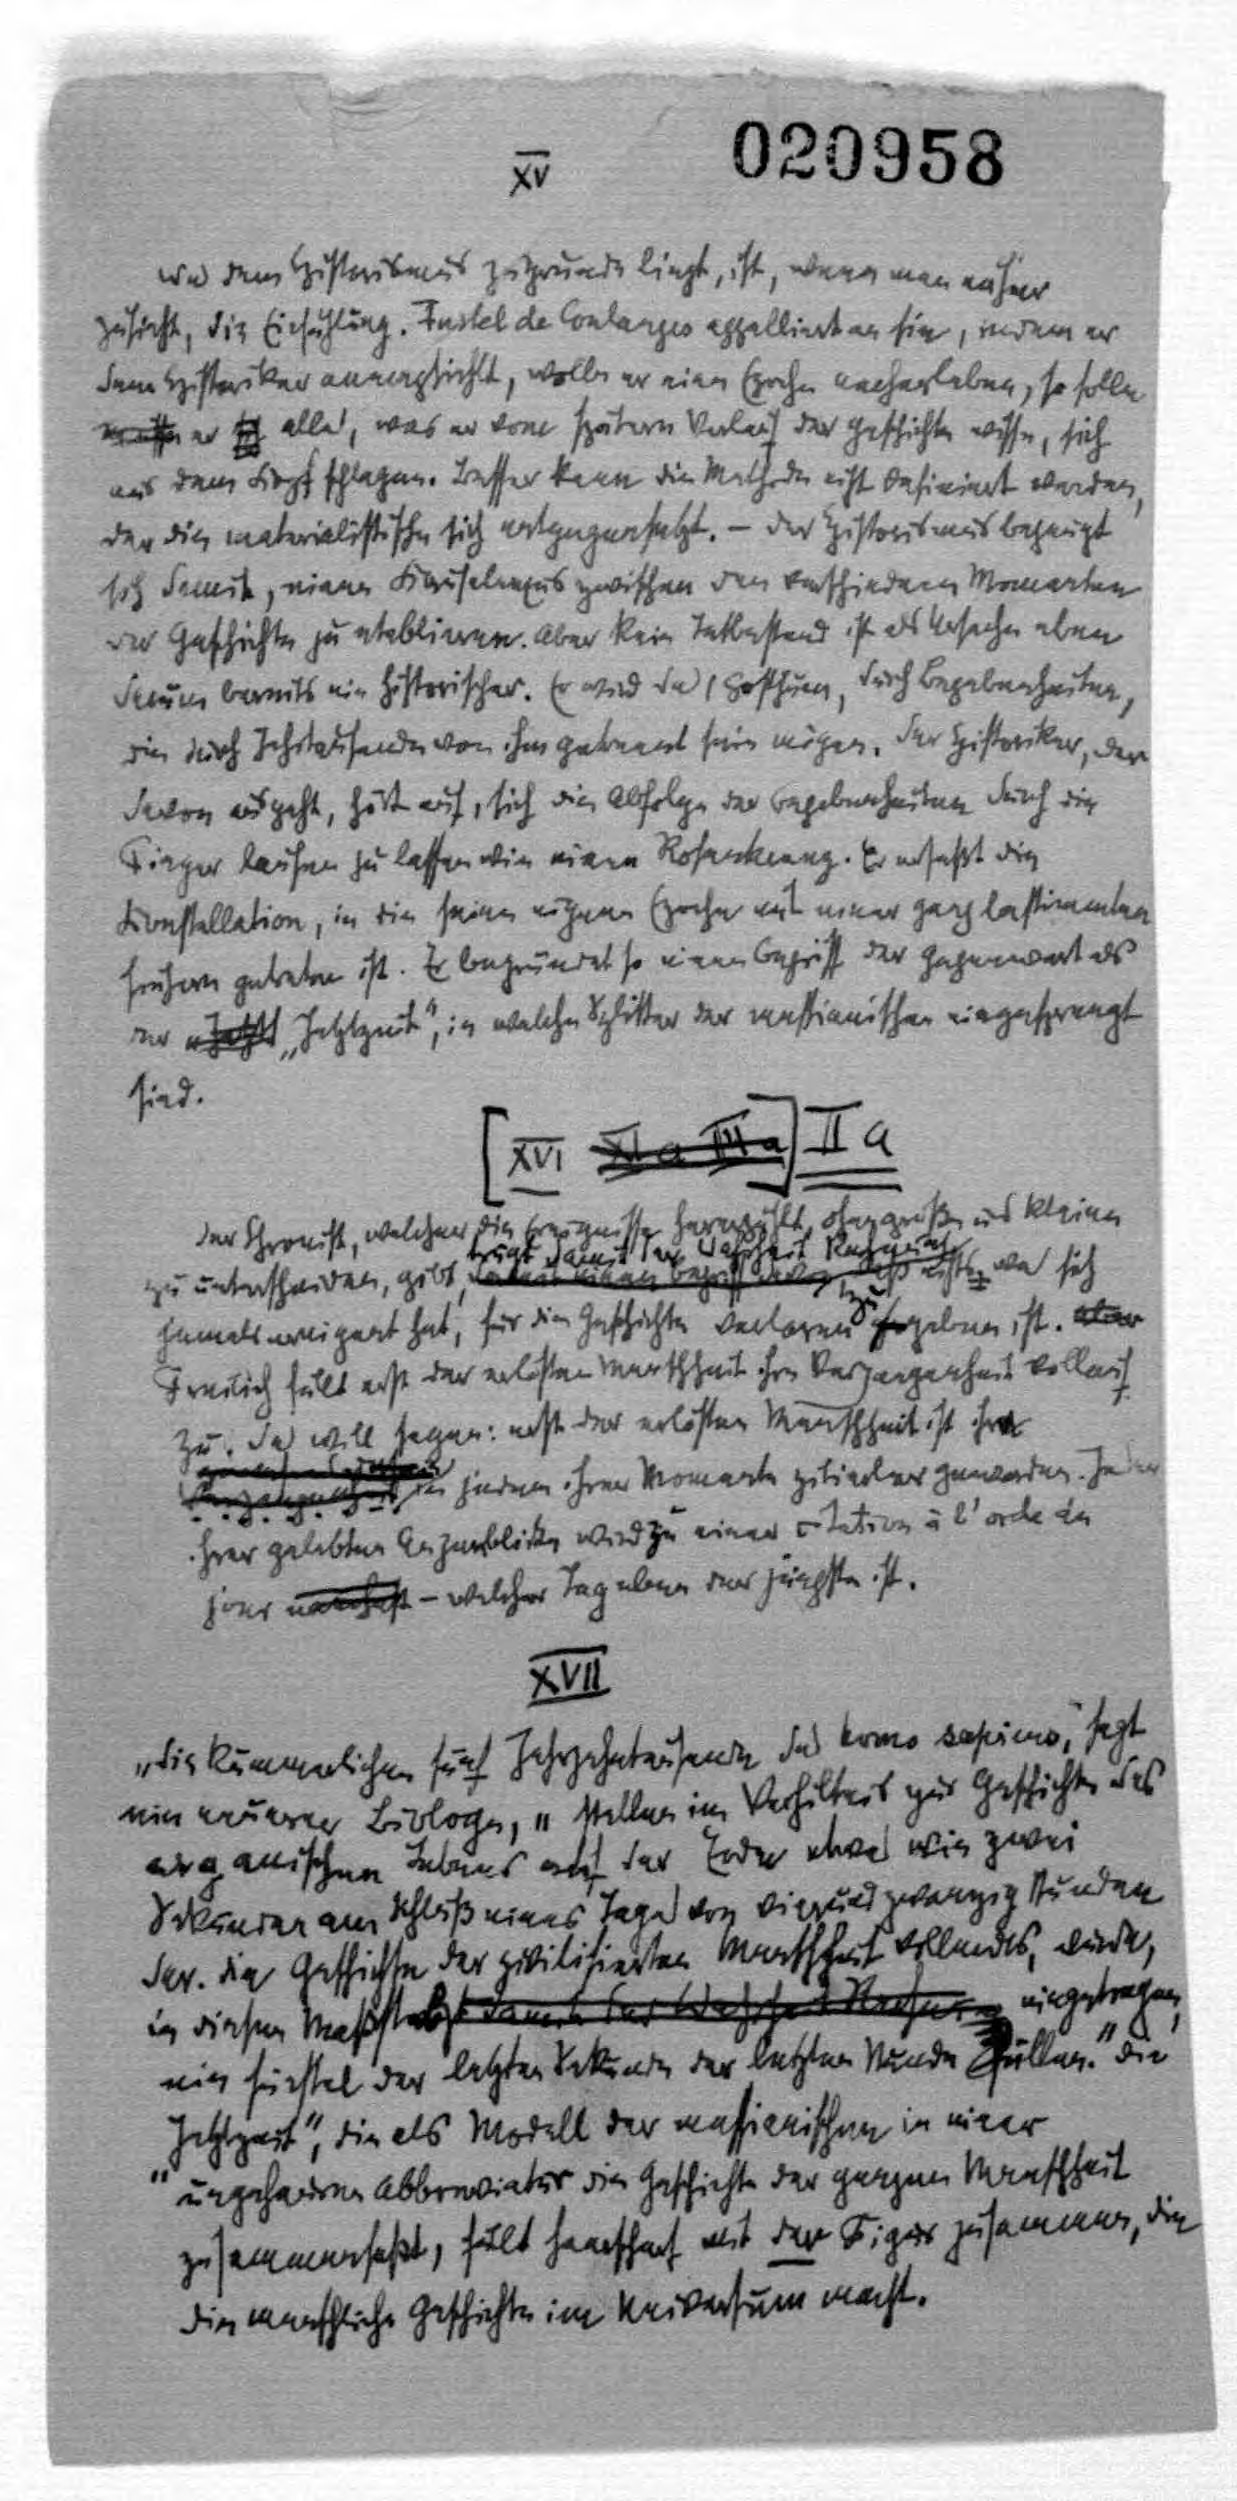 020958
XV
was dem Historismus zugrunde liegt, ist, wenn man näher
zusieht, die Einfühlung. Fustel de Coulanges appelliert an sie, indem er
dem Historiker anempfiehlt, wolle er eine Epoche nacherleben, so solle
er alles, was er vom spätern Verlauf der Geschichte wisse, sich
aus dem Kopf schlagen. Besser kann die Methode nicht definiert werden,
der die materialistische sich entgegensetzt. – Der Historismus begnügt
sich damit, einen Kausalnexus zwischen den verschiednen Momenten
der Geschichte zu etablieren. Aber kein Tatbestand ist als Ursache eben
darum bereits ein historischer. Er wird das, posthum, durch Begebenheiten,
die durch Jahrtausende von ihm getrennt sein mögen. Der Historiker, der
davon ausgeht, hört auf, sich die Abfolge der Begebenheiten durch die
Finger laufen zu lassen wie einen Rosenkranz. Er erfaßt die
Konstellation, in die seine eigene Epoche mit einer ganz bestimmten
frühern getreten ist. Er begründet so einen Begriff der Gegenwart als
der „Jetzt „Jetztzeit“, in welcher Splitter der messianischen eingesprengt
sind.
[XVI XI a III a] II a
Der Chronist, welcher die Ereignisse hererzählt, ohne große und kleine
trägt damit der Wahrheit Rechnung
zu unterscheiden, gibt damit einen Begriff davon, daß nichts was sich
jemals ereignet hat, für die Geschichte verloren zu geben ist. aber
Freilich fällt erst der erlösten Menschheit ihre Vergangenheit vollauf
zu. Das will sagen: erst der erlösten Menschheit ist ihre
Vergangenheit in jedem ihrer Momente zitierbar geworden. Jeder
ihrer gelebten Augenblicke wird zu einer citation à l'ordre du
jour – welcher Tag eben der jüngste ist.
XVII
„Die kümmerlichen fünf Jahrzehntausende des homo sapiens,“ sagt
ein neuerer Biologe, „stellen im Verhältnis zur Geschichte des
organischen Lebens auf der Erde etwas wie zwei
Sekunden am Schluß eines Tages von vierundzwanzig Stunden
dar. Die Geschichte der zivilisierten Menschheit vollends, würde,
in diesen Maßstab eingetragen,
ein fünftel der letzten Sekunde der letzten Stunde füllen.“ Die
„Jetztzeit“, die als Modell der messianischen in einer
ungeheuren Abbreviatur die Geschichte der ganzen Menschheit
zusammenfaßt, fällt haarscharf mit der Figur zusammen, die
die menschliche Geschichte im Universum macht.